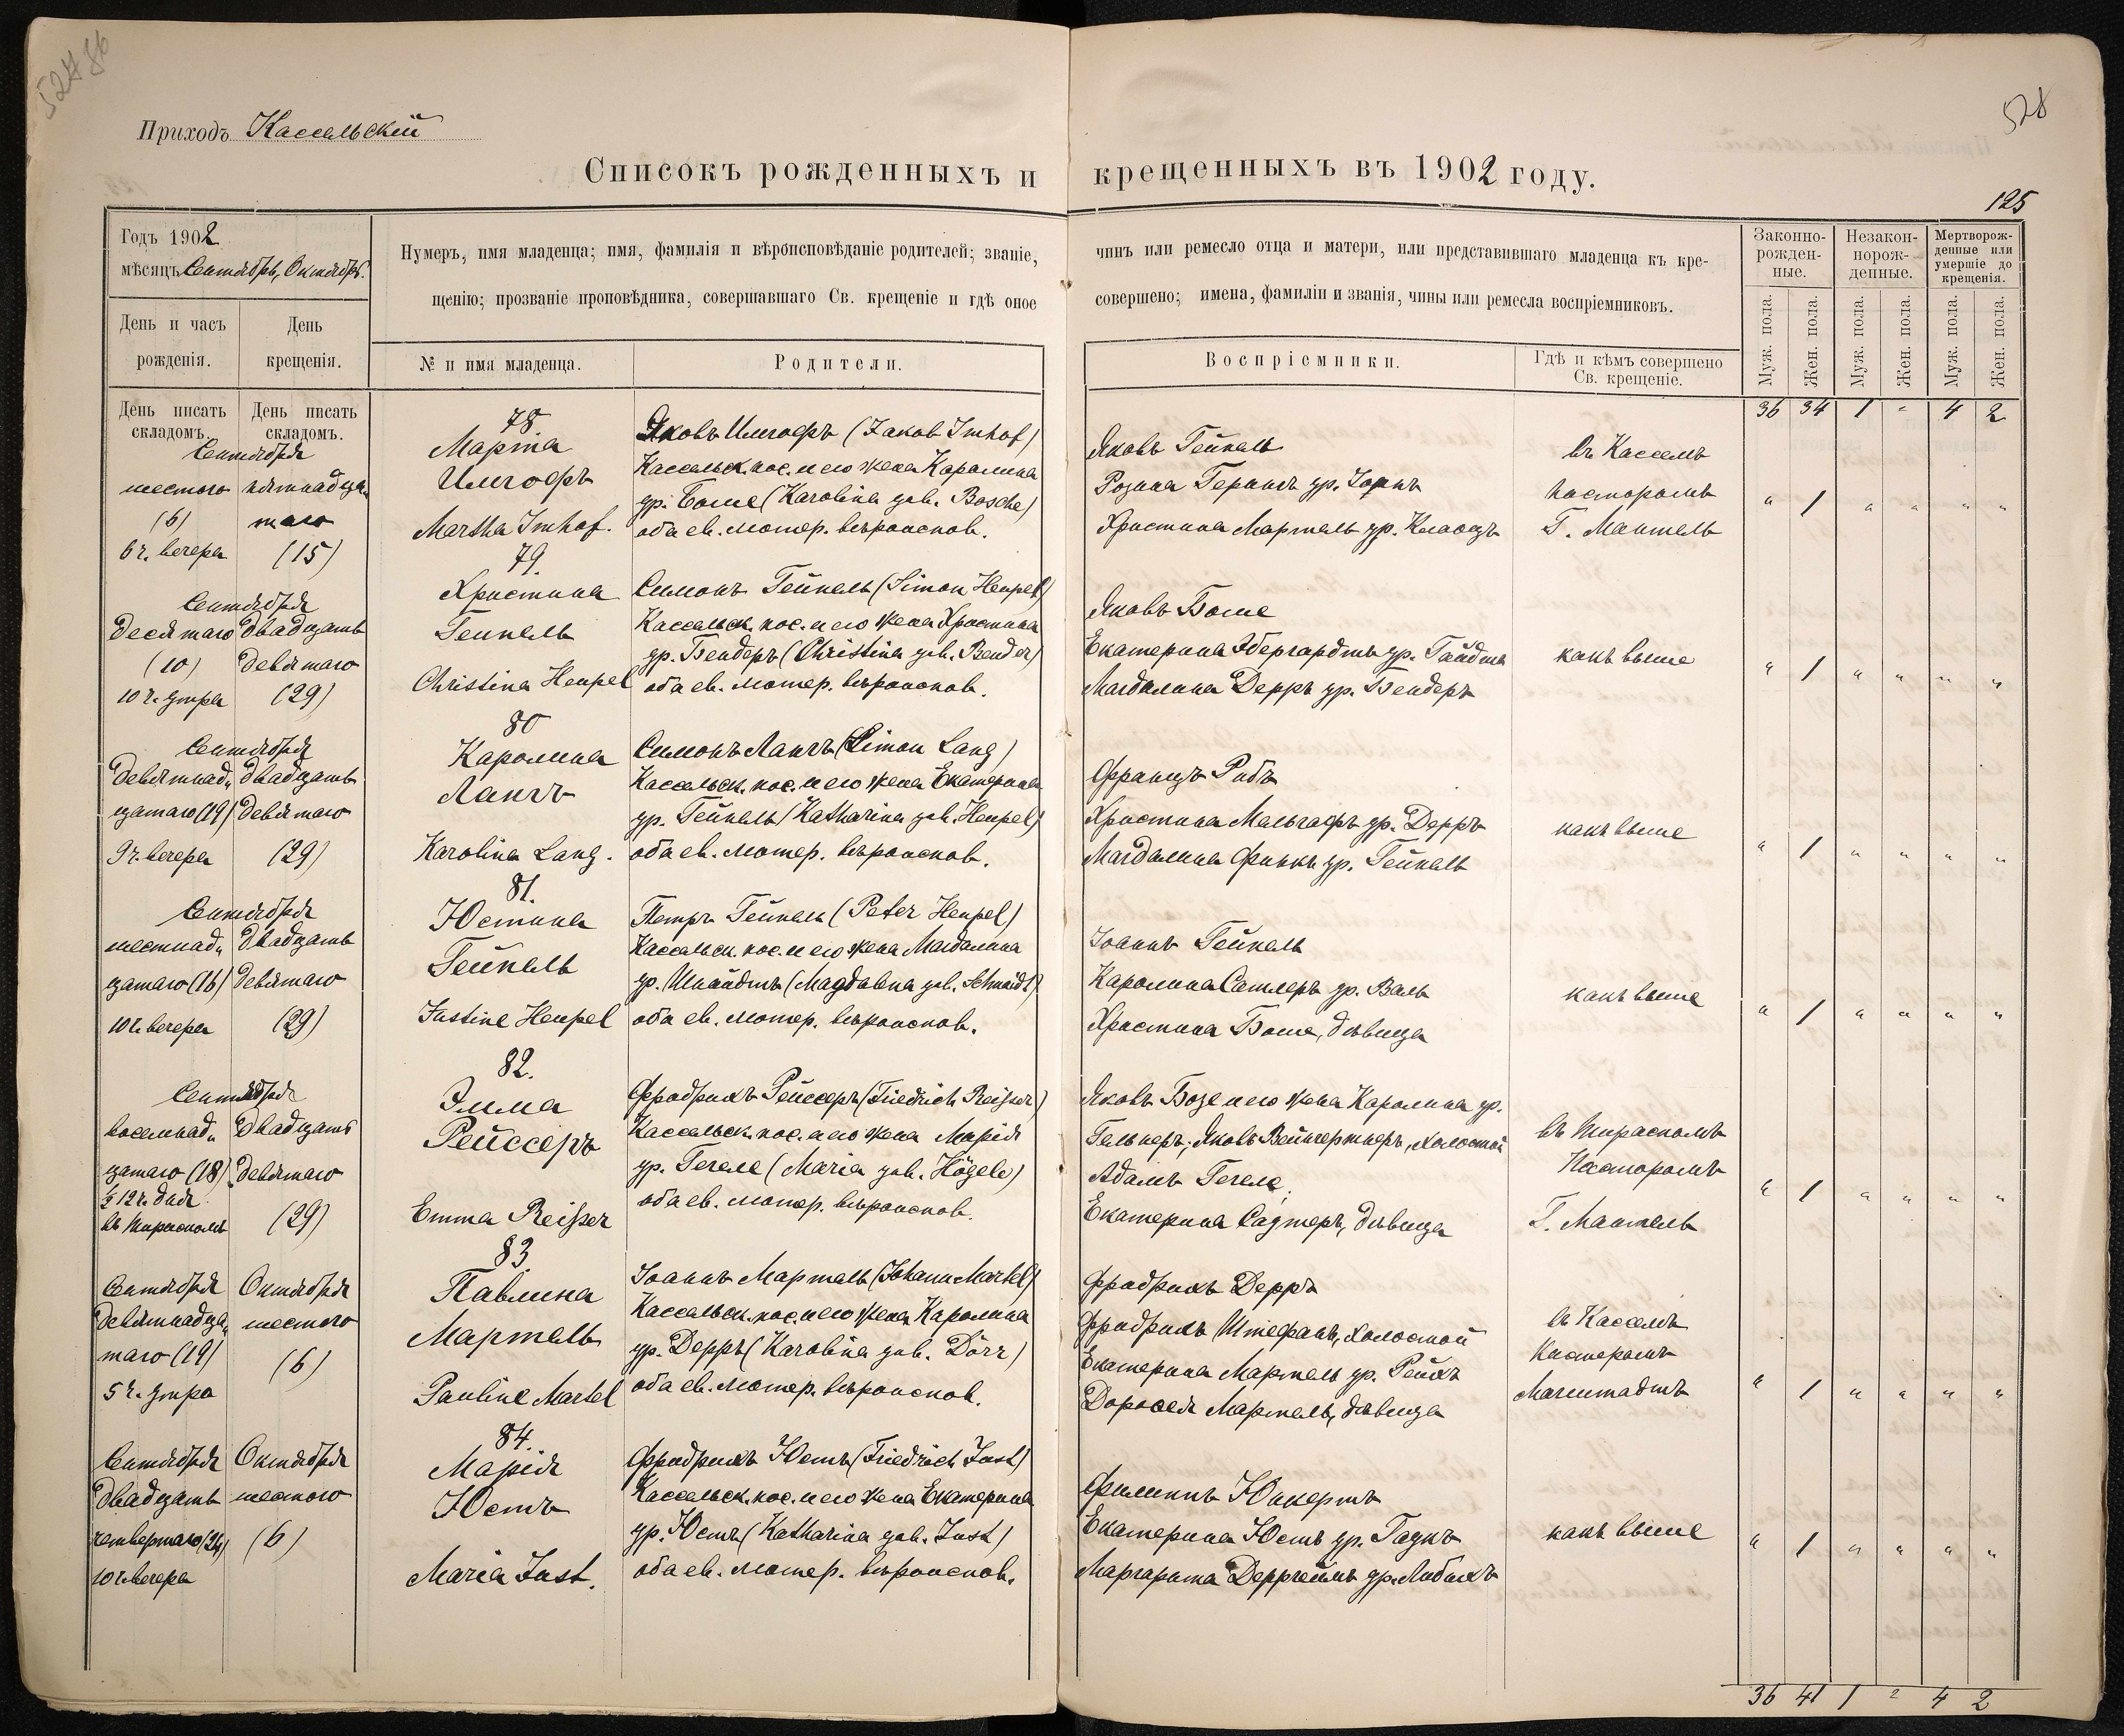 528
Приходъ Кассельскій
Списокъ рожденныхъ и крещенныхъ въ 1902 году.
125
Годъ 1902
мѣсяцъ Сентябрь, Октябрь.
Нумеръ, имя младенца; имя, фамилія и вѣроисповѣданіе родителей; званіе, чинъ или ремесло отца и матери, или представившаго младенца къ кре-
щенію; прозваніе проповѣдника, совершавшаго Св. крещеніе и гдѣ оное совершено; имена, фамиліи и званія, чины или ремесла воспріемниковъ.
Законно-
рожден-
ные.
Незакон-
норож-
денные.
Мертворож-
денные или
умершіе до
крещенія.
День и часъ
рожденія.
День
крещенія.
№ и имя младенца.
Родители.
Воспріемники.
Гдѣ и кѣмъ совершено
Св. крещеніе.
Муж. пола.
Жен. пола.
Муж. пола.
Жен. пола.
Муж. пола.
Жен. пола.
День писать
складомъ.
День писать
складомъ.
36 34 1 " 4 2
Сентября
шестого
(6)
6 ч. вечера
пятнадца„
таго
(15)
78.
Марта
Имгофъ
Martha Imhof.
Яковъ Имгофъ (Jakob Imhof)
Кассельск. пос. и его жена Каролина
ур. Боше (Karolina geb. Bosche)
оба ев. лютер. вѣроиспов.
Яковъ Гейпель
Розина Герингъ ур.
Христина Мартель ур.
въ Касселѣ
пасторомъ
Г. Мантель
" 1 " " " "
Сентября
десятаго
(10)
10 ч. утра
двадцать
девятаго
(29)
79.
Христина
Гейпель
Christina Heupel
Симонъ Гейпель (Simon Heupel)
Кассельск. пос. и его жена Христина
ур. Бендеръ (Christina geb. Bender)
оба ев. лютер. вѣроиспов.
Яковъ Боше
Екатерина Эбергардтъ ур. Гайдтъ
Магдалина Дерръ ур. Бендеръ
какъ выше
" 1 " " " "
Сентября
девятнад„
цатаго (19)
9 ч. вечера
двадцать
девятаго
(29)
80
Каролина
Лангъ
Karolina Lang.
Симонъ Лангъ (Simon Lang)
Кассельск. пос. и его жена Екатерина
ур. Гейпель (Katharina geb. Heupel)
оба ев. лютер. вѣроиспов.
Францъ Рибъ
Христина Мальгафъ ур. Дерръ
Магдалина Финкъ ур. Гейпель
какъ выше
" 1 " " " "
Сентября
шестнад„
цатаго (16)
10 ч. вечера
двадцать
девятаго
(29)
81.
Юстина
Гейпель
Justine Heupel
Петръ Гейпель (Peter Heupel)
Кассельск. пос. и его жена Магдалина
ур. Шнайдтъ (Magdalena geb. Schnaidt)
оба ев. лютер. вѣроиспов.
Іоаннъ Гейпель
Каролина Сатлеръ ур. Валь
Христина Боше, дѣвица
какъ выше
" 1 " " " "
Сентября
восемнад„
цатаго (18)
½ 12 ч. дня
въ Тирасполѣ
двадцать
девятаго
(29)
82.
Эмма
Рейссеръ
Emma Reißer
Фридрихъ Рейссеръ (Friedrich Reißer)
Кассельск. пос. и его жена Марія
ур. Гегеле (Maria geb. Hägele)
оба ев. лютер. вѣроиспов.
Яковъ Бозе и его жена Каролина ур.
Гельперъ; Яковъ Вейнгертнеръ, холостой
Адамъ Гегеле;
Екатерина Садтеръ, дѣвица
въ Тирасполѣ
Пасторомъ
Г. Мантель
" 1 " " " "
Сентября
девятнадца„
таго (19)
5 ч. утра
Октября
шестого
(6)
83.
Павлина
Мартель
Pauline Martel
Іоаннъ Мартель (Johann Martel)
Кассельск. пос. и его жена Каролина
ур. Дерръ (Karolina geb. Dörr)
оба ев. лютер. вѣроиспов.
Фридрихъ Дерръ
Фридрихъ Штефанъ, холостой
Екатерина Мартель ур. Рейхъ
Доротея Мартель, дѣвица
въ Касселѣ
Кистеромъ
" 1 " " " "
Сентября
двадцать
четвертаго (24)
10 ч. вечера
Октября
шестого
(6)
84.
Марія
Юстъ
Maria Just.
Фридрихъ Юстъ (Friedrich Just)
Кассельск. пос. и его жена Екатерина
ур. Юстъ (Katharina geb. Just)
оба ев. лютер. вѣроиспов.
Филиппъ Юнкертъ
Екатерина Юстъ ур. Гаукъ
Маргарита Дерргеймъ ур. Либихъ
какъ выше
" 1 " " " "
36 41 1 " 4 2